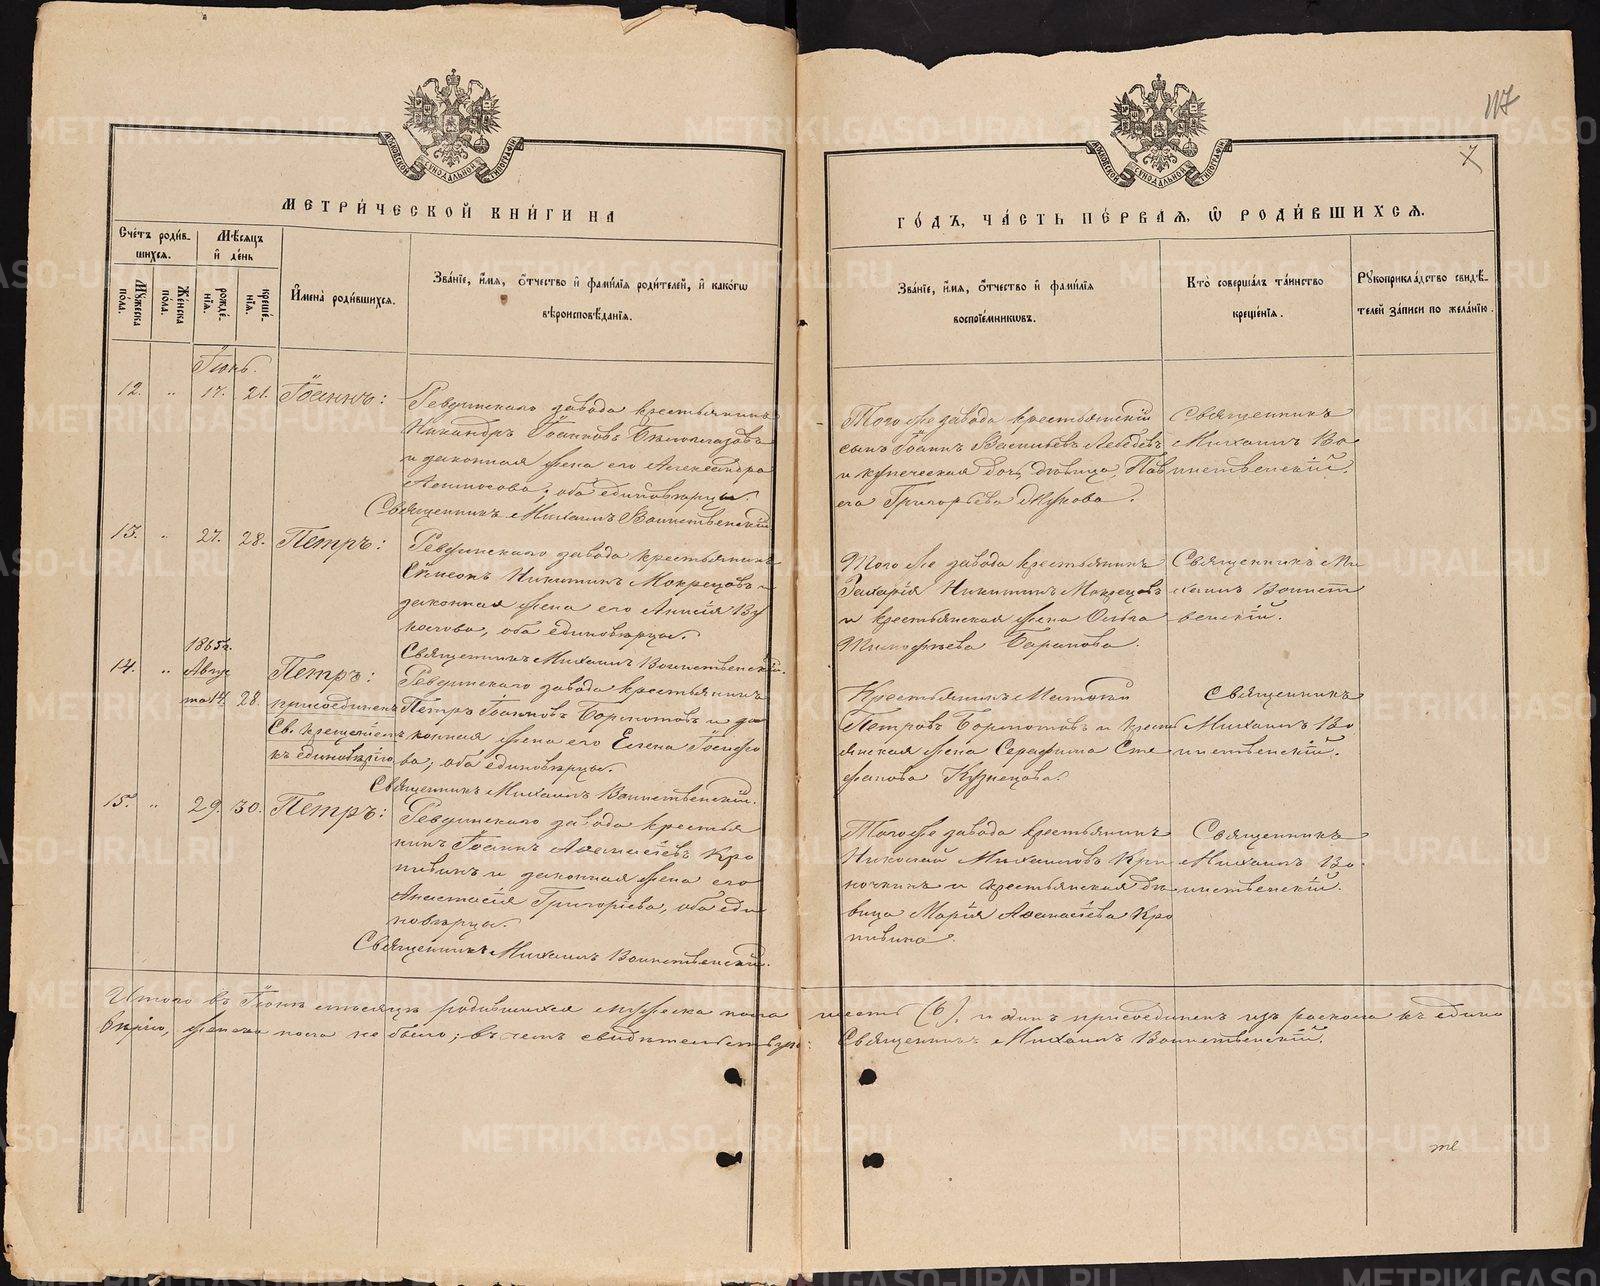 117
7
МОСКОВСКОЙ СѴНОДАЛЬНОЙ ТИПОГРАФІИ
МОСКОВСКОЙ СѴНОДАЛЬНОЙ ТИПОГРАФІИ
МЕТРИ́ЧЕСКОЙ КНИ́ГИ НА
ГО́ДЪ, ЧА́СТЬ ПЕ́РВАЯ, Ѿ РОДИ́ВШИХСЯ.
Сче́тъ роди́в-
шихся.
Мꙋжеска по́ла.
Же́нска по́ла.
Мѣ́сяцъ
и҆ де́нь
рожде́-
нїя.
креще́-
нїя.
И҆мена̀ роди́вшихся.
Зва́нїе, и҆́мя, ѻ҆́тчество и҆ фами́лїя роди́телей, и҆ како́гѡ
вѣроисповѣ́данїя.
Зва́нїе, и҆́мя, ѻ҆́тчество и҆ фами́лїя
воспрїе́мникѡвъ.
Кто̀ соверша́лъ та́инство
креще́нїя.
Рꙋкоприкла́дство свидѣ́-
телей за́писи по жела́нїю.
Іюнь.
12. " 17. 21. Іоаннъ:
Ревдинскаго завода крестьянинъ
Никандръ Іоанновъ Бѣлоглазовъ
и законная жена его Александра
оба единовѣрцы.
Священникъ Михаилъ Воинственскій
Того же завода крестьянскій
сынъ Іоаннъ Васильевъ Лебедевъ
и купеческая дочь дѣвица Пав
ла Григорьева
Священникъ
Михаилъ Во
инственскій.
13. " 27. 28. Петръ:
Ревдинскаго завода крестьянинъ
Никитинъ Мокрецовъ и
законная жена его Анисія Ву
колова, оба единовѣрцы.
Священникъ Михаилъ Воинственскій.
Того же завода крестьянинъ
Захарія Никитинъ Мокрецовъ
и крестьянская жена Ольга
Тимофѣева Баранова.
Священникъ Ми
хаилъ Воинст
венскій.
1865 г.
14. " Авгус
та 14. 28. Петръ:
присоединенъ
Св. крещеніемъ
къ единовѣрію
Ревдинскаго завода крестьянинъ
Петръ Іоанновъ Бормотовъ и за
конная жена его Елена Іосифо
ва, оба единовѣрцы.
Священникъ Михаилъ Воинственскій.
Крестьянинъ
Петровъ Бормотовъ и крест
янская жена Серафима Сте
фанова Кузнецова.
Священникъ
Михаилъ Во
инственскій.
15. " 29. 30. Петръ:
Ревдинскаго завода крестья
нинъ Іоаннъ Аѳанасіевъ Кро
пивинъ и законная жена его
Анастасія Григоріева, оба еди
новѣрцы.
Священникъ Михаилъ Воинственскій.
Того же завода крестьянинъ
Николай Михаиловъ Кри
ночкинъ и крестьянская дѣ
вица Марія Аѳанасіева Кро
пивина.
Священникъ
Михаилъ Во
инственскій.
Итого въ Іюнѣ мѣсяцѣ родившихся мужеска пола шесть (6), и одинъ присоединенъ изъ раскола къ едино
вѣрію, женска пола не было; въ чемъ свидѣтельствую: Священникъ Михаилъ Воинственскій.
METRIKI.GASO-URAL.RU